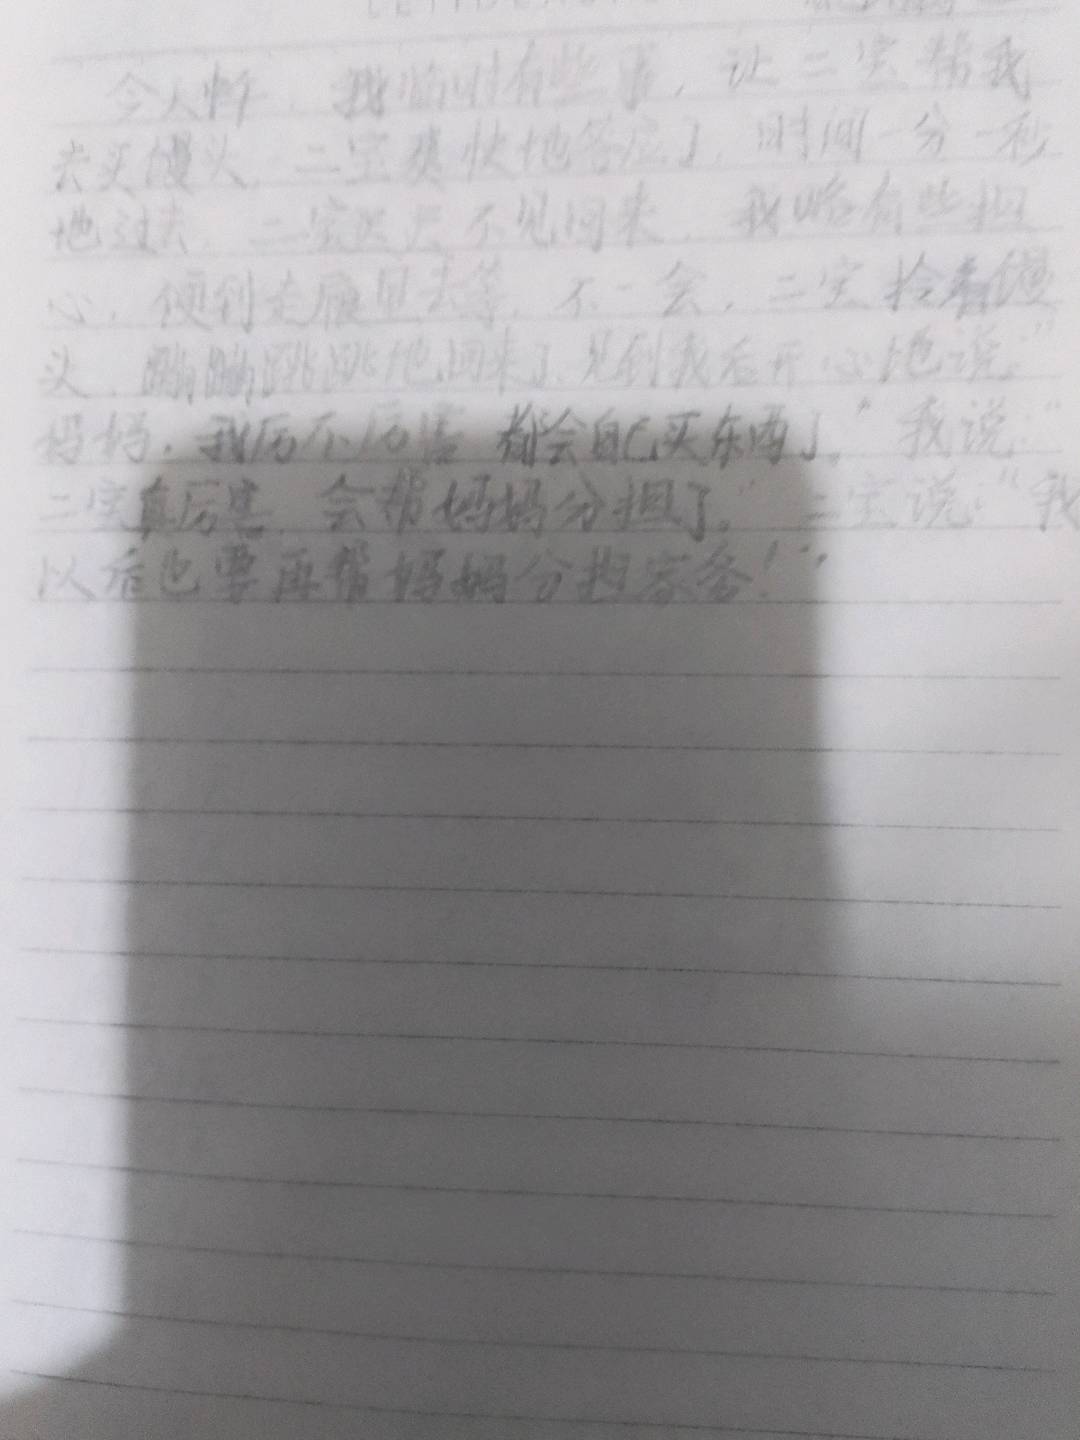 今天下午，我临时有些事，让二宝帮我
去买馒头，二宝爽快地答应了，时间一分一秒
地过去，二宝迟迟不见回来，我略有些担
心，便到走廊里去等，不一会，二宝拎着馒
头，蹦蹦跳跳地回来了，见到我后开心地说："
妈妈，我厉不厉害，都会自己买东西了。"我说："
二宝真厉害，会帮妈妈分担了。"二宝说："我
以后也要再帮妈妈分担家务！"